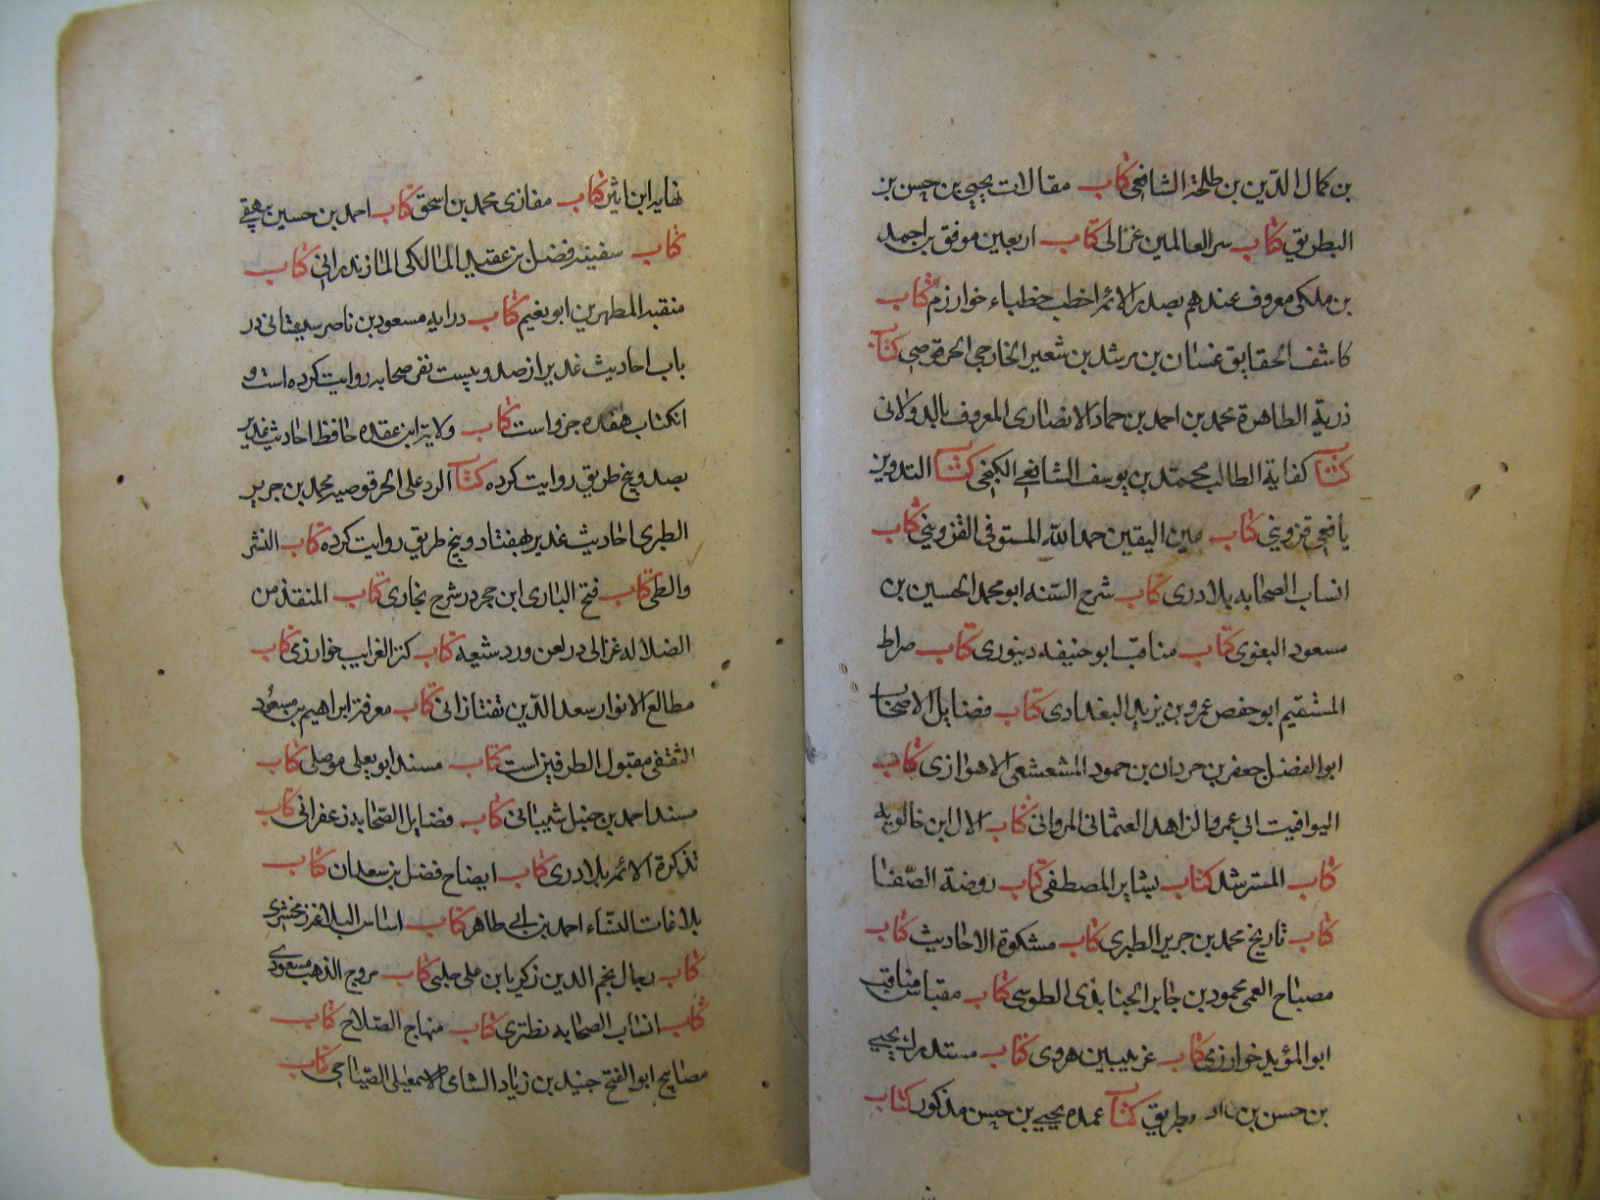 بن کمال الدّین بن طلحة الشافعی کتاب مقالات یحیی بن حسن بن
البطریق کتاب سر العالمین غزالی کتاب اربعین موفق بن احمد
بن ملکی معروف عندهم بصدر الائمه اخطب خطباء خوارزم کتاب
کاشف الحقایق غسان بن مرشد بن شعیر الخارجی الحرقوصی کتاب
ذریة الطاهرة محمد بن احمد بن حماد الانصاری المعروف بالدولانی
کتاب کفایة الطالب محمّد بن یوسف الشافعی الکنجی کتاب التدوین
یافعی قزوینی کتاب مبین الیقین حمد الله المستوفی القزوینی کتاب
انساب الصحابه بلادری کتاب شرح السّنه ابو محمد الحسین بن
مسعود البغوی کتاب مناقب ابو حنیفه دینوری کتاب صراط
المستقیم ابو حفص عمرو بن یزید البغدادی کتاب فضایل الاصحاب
ابو الفضل جعفر بن حردان بن حمود المشعشعی الاهوازی کتاب
الیواقیت ابی عمر والزاهد العثمانی المروانی کتاب الال ابن خالویه
کتاب المسترشد کتاب بشایر المصطفی کتاب روضة الصّفا
کتاب تاریخ محمد بن جریر الطبری کتاب مشکوة الاحادیث کتاب
مصباح العمی محمود بن جابر الجنابذی الطوسی کتاب مقباس مناقب
ابو المؤید خوارزمی کتاب غریبین هروی کتاب مستدرک یحیی
بن حسن بن بطریق کتاب عمده یحیی بن حسن مذکور کتاب
نهایه ابن اثیر کتاب مغازی محمد بن اسحق کتاب احمد بن حسین بیهقی
کتاب سفینه فضل بن عقیل المالکی المازندرانی کتاب
منقبه المطهرین ابو نعیم کتاب درایه مسعود بن ناصر سجستانی در
باب احادیث غدیر از صد و بیست نفر صحابه روایت کرده است و
انکتاب هفده جزو است کتاب ولایة ابن عقده حافظ احادیث غدیر
بصد و پنج طریق روایت کرده کتاب الرد علی الحرقوصیه محمد بن جریر
الطبری احادیث غدیر بهفتاد و پنج طریق روایت کرده کتاب النشر
والطی کتاب فتح الباری ابن حجر در شرح بخاری کتاب المنقذ من
الضلاله غزالی در لعن ورد شیعه کتاب کنز الغرایب خوارزمی کتاب
مطالع الانوار سعد الدّین تفتازانی کتاب معرفة ابراهیم بن مسعود
الثقفی مقبول الطرفین است کتاب مسند ابو یعلی موصلی کتاب
مسند احمد بن حنبل شیبانی کتاب فضایل الصّحابه زعفرانی کتاب
تذکرة الائمه بلادری کتاب ایضاح فضل بن سعدان کتاب
بلاغات النساء احمد بن ابی طاهر کتاب اساس البلاغه زمخشری
کتاب رجال نجم الدین زکریا بن علی حلبی کتاب مروج الذهب مسعودی
کتاب انساب الصحابه نطنزی کتاب منهاج الصّلاح کتاب
مصابیح ابو الفتح جنید بن زیاد الشاعی الاسمعیلی الصّباحی کتاب